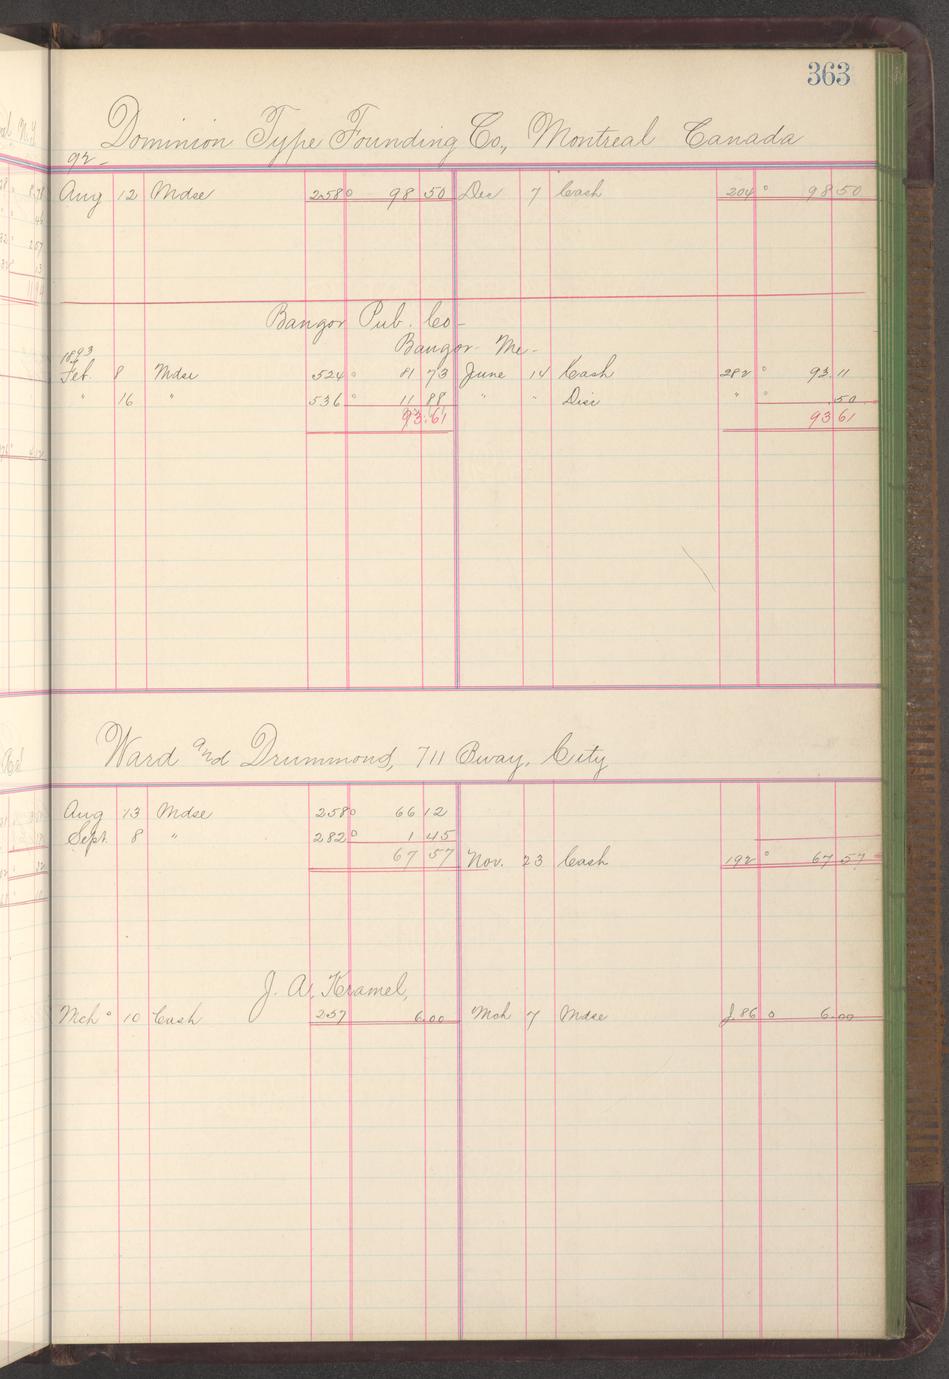 363
Dominion Type Founding Co., Montreal Canada
92-
Aug 12 Mdse 258 98 50 Dec 7 Cash 204 98 50
Bangor Pub. Co-
Bangor- Me-
1893
Feb. 8 Mdse 524 81 73 June 14 Cash 282 93.11
" 16 " 536 11 88 " " Disc " .50
93.61 93 61
Ward and Drummond, 711 Bway, City
Aug 13 Mdse 258 66 12
Sept. 8 " 282 1 45
67 57 Nov. 23 Cash 192 67 57
J. A. Kramel,
Mch 10 Cash 257 6.00 Mch 7 Mdse J.86 6.00